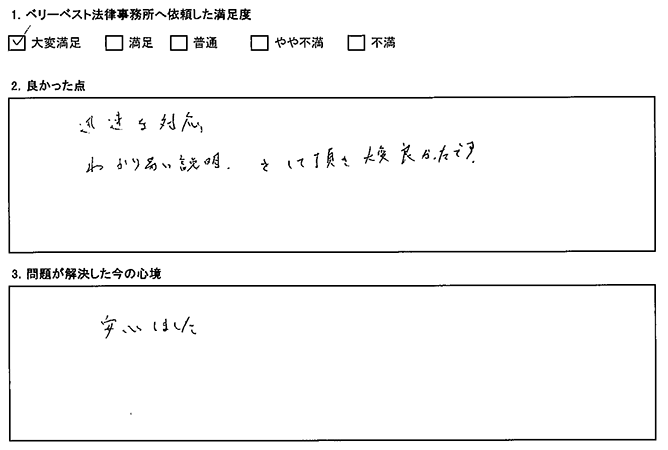 1. ベリーベスト法律事務所へ依頼した満足度
☑ 大変満足 □ 満足 □ 普通 □ やや不満 □ 不満
2. 良かった点
迅速な対応、
わかり易い説明. をして頂き 大変良かったです.
3. 問題が解決した今の心境
安心しました